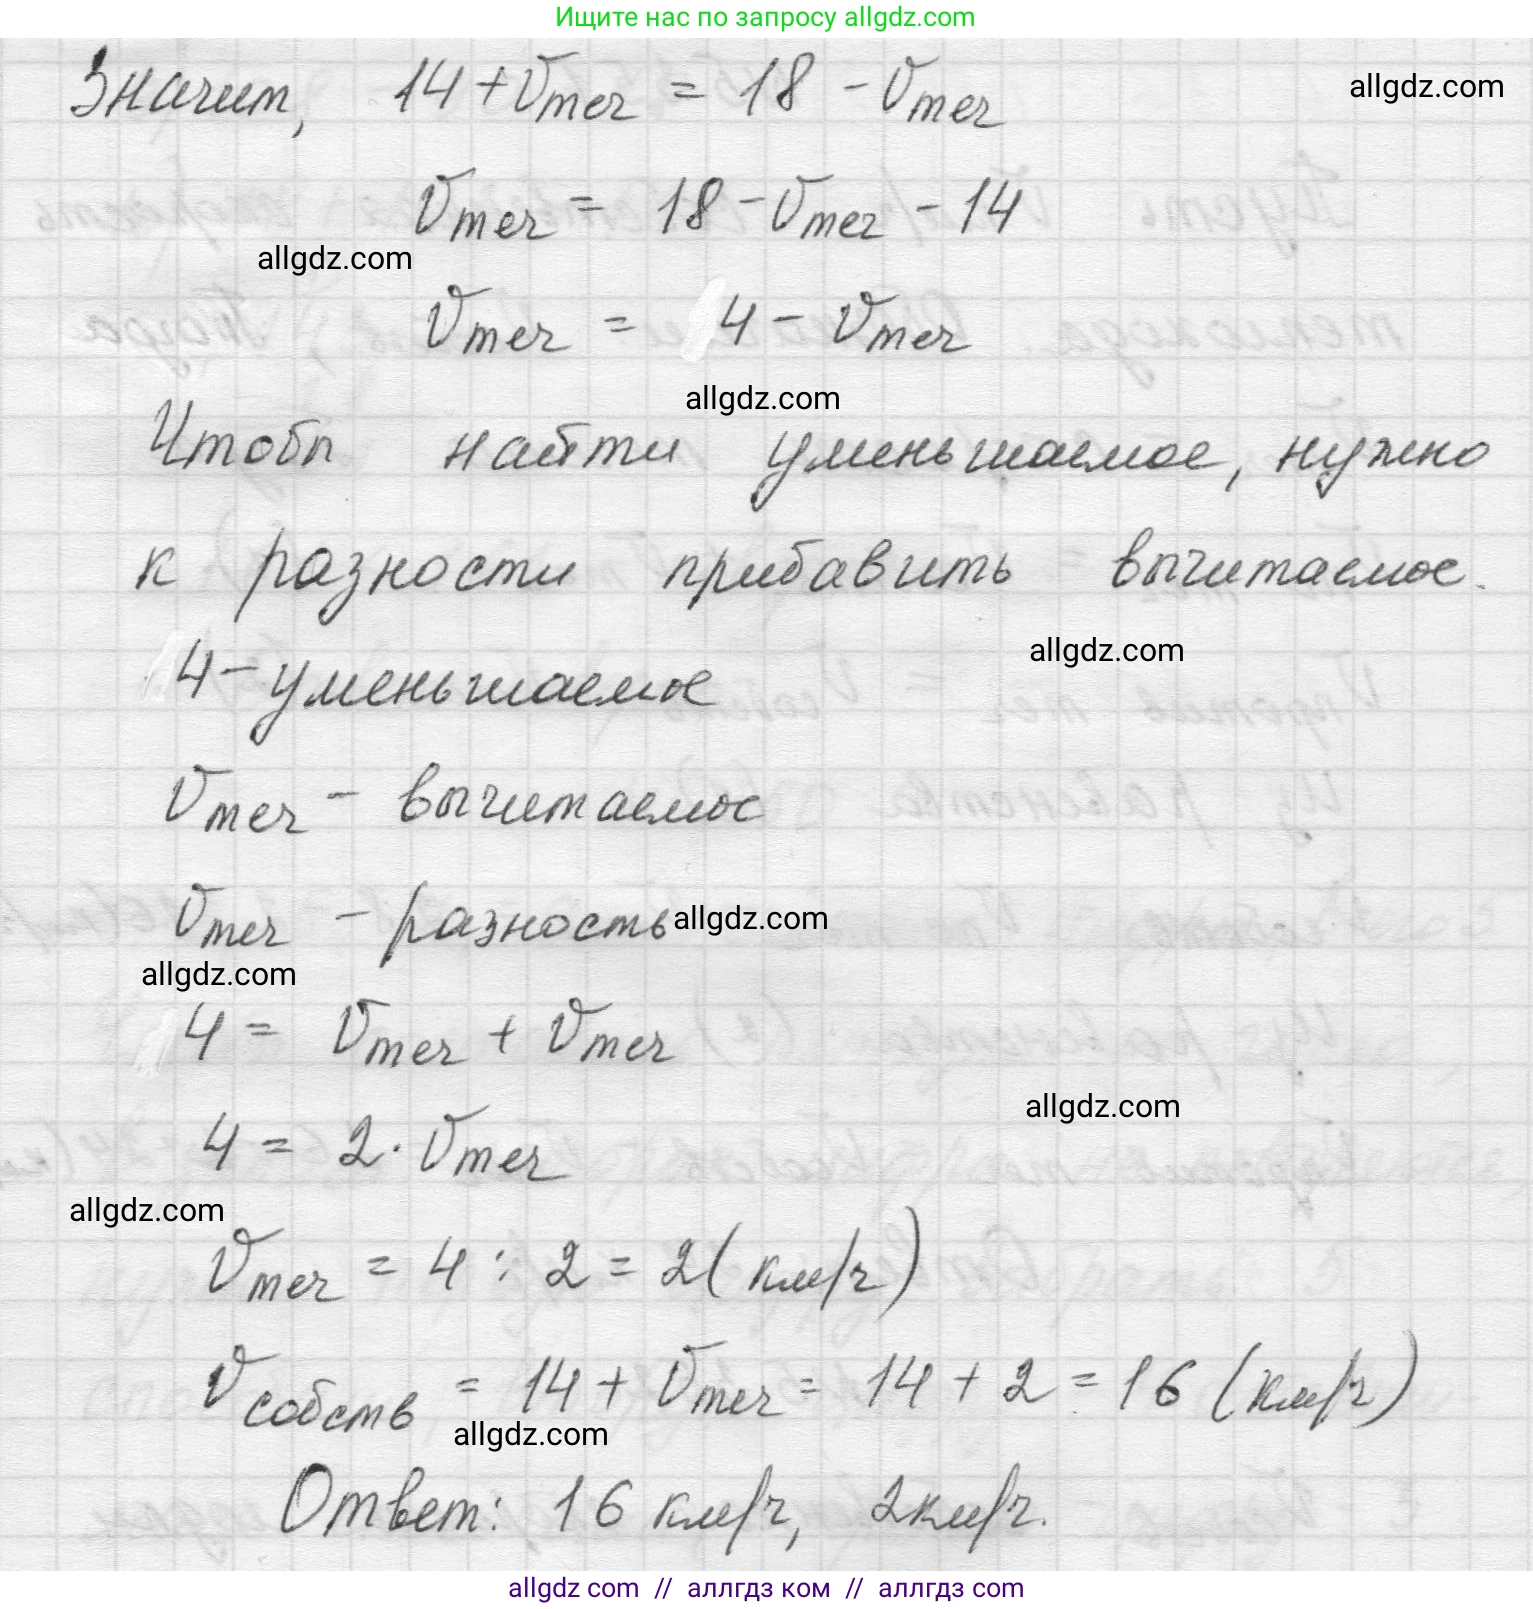 Ищите нас по запросу allgdz.com
Значит, 14 + Vтеч = 18 - Vтеч
allgdz.com
Vтеч = 18 - Vтеч - 14
allgdz.com
Vтеч = 4 - Vтеч
allgdz.com
Чтобы найти уменьшаемое, нужно
к разности прибавить вычитаемое.
allgdz.com
4 - уменьшаемое
Vтеч - вычитаемое
Vтеч - разность
allgdz.com
allgdz.com
4 = Vтеч + Vтеч
allgdz.com
4 = 2 · Vтеч
allgdz.com
Vтеч = 4 : 2 = 2 (км/ч)
Vсобств = 14 + Vтеч = 14 + 2 = 16 (км/ч)
allgdz.com
Ответ: 16 км/ч, 2 км/ч.
allgdz.com // аллгдз ком // аллгдз com